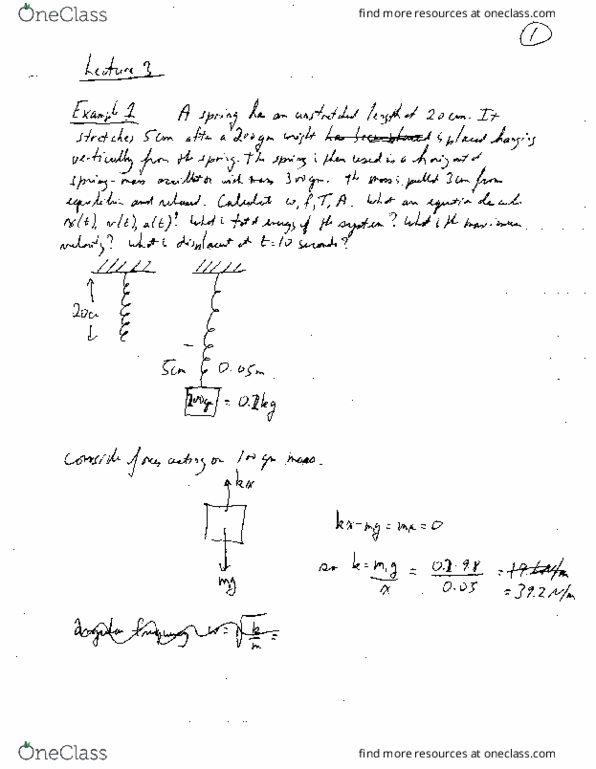 OneClass
find more resources at oneclass.com
1
Lecture 3
Example 1 A spring has an unstretched length of 20 cm. It
stretches 5cm after a 200gm weight is placed hanging
vertically from the spring. The spring is then used in a horizontal
spring-mass oscillator with mass 300gm. The mass is pulled 3cm from
equilibrium and released. Calculate ω, f, T, A. What an equation describe
x(t), v(t), a(t)? What is total energy of the system? What is the maximum
velocity? What is displacement at t=10 seconds?
20cm
5cm 0.05m
200gm = 0.2kg
Consider forces acting on 100 gm mass.
kx
kx-mg = ma = 0
so k = m,g / x = 0.2·9.8 / 0.05 = 19.6 N/m
= 39.2 N/m
mg
Angular frequency ω = √k/m =
OneClass
find more resources at oneclass.com